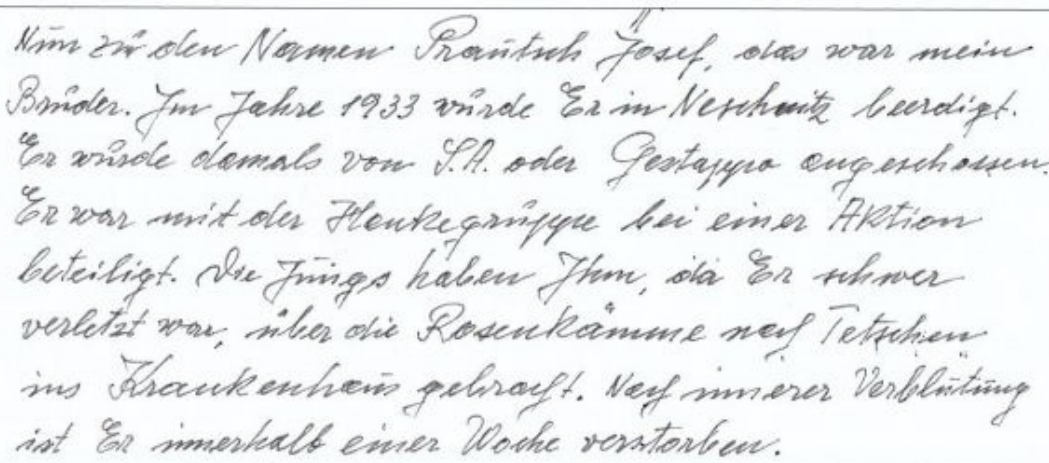 Nun zu den Namen Prautsch Josef, das war mein
Bruder. Im Jahre 1933 wurde Er in Neschwitz beerdigt.
Er wurde damals von S.A. oder Gestappo angeschossen.
Er war mit der Henkegruppe bei einer Aktion
beteiligt. Die Jungs haben Ihm, da Er schwer
verletzt war, über die Rosenkämme nach Tetschen
ins Krankenhaus gebracht. Nach innerer Verblutung
ist Er innerhalb einer Woche verstorben.